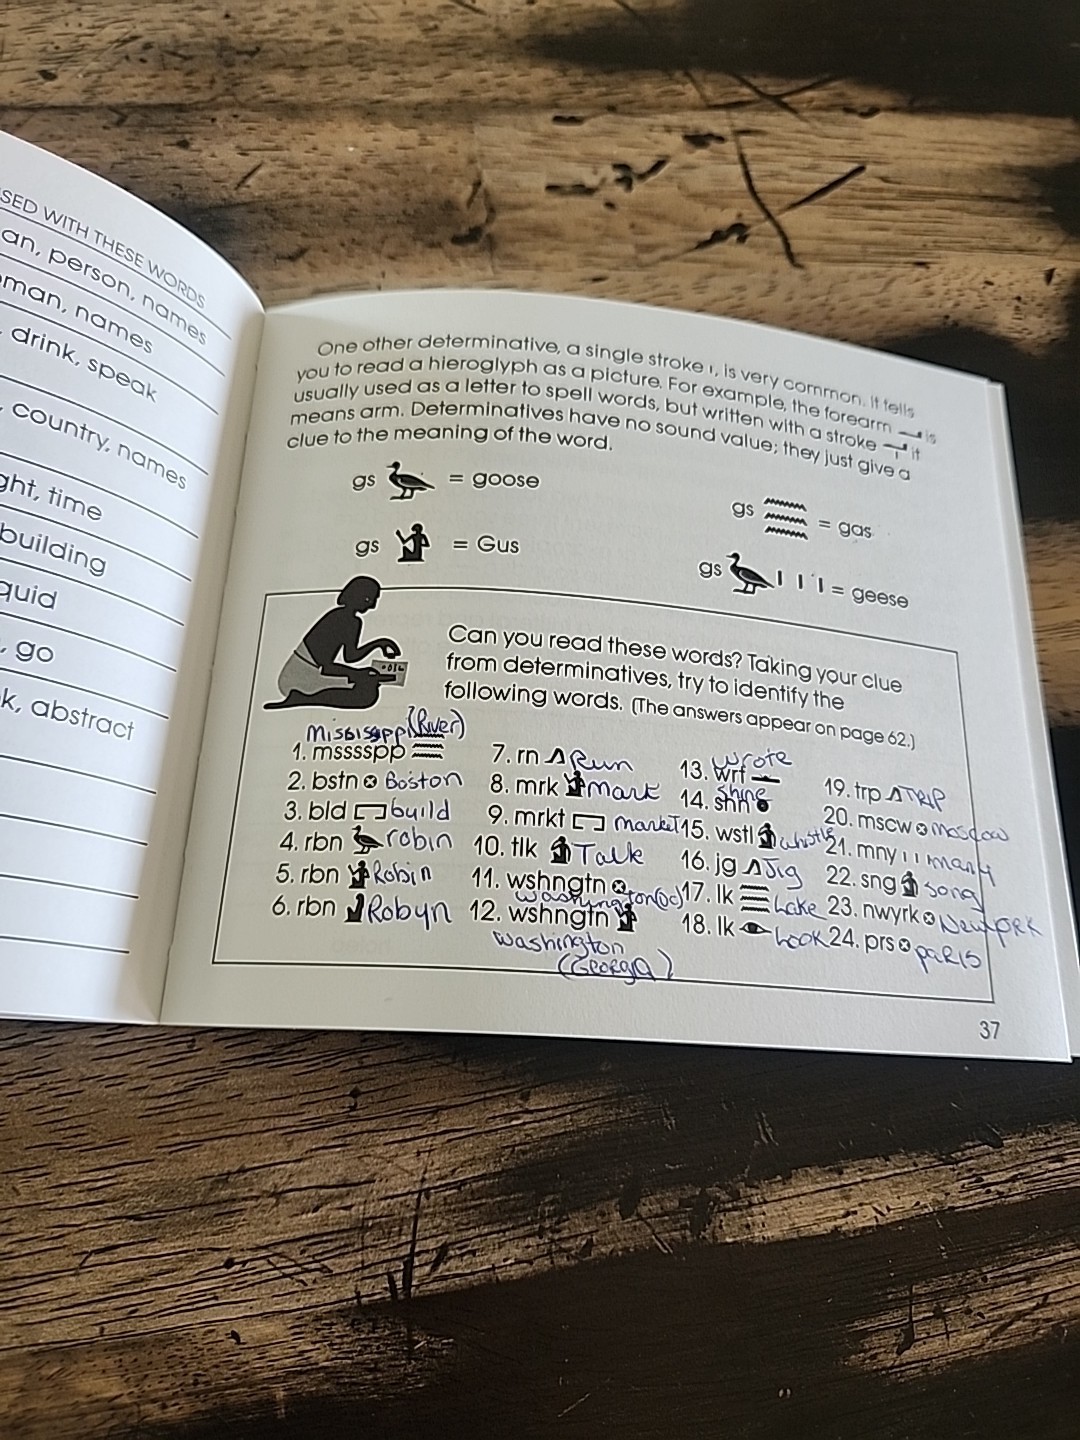 SED WITH THESE WORDS
an, person, names
man, names
drink, speak
, country, names
ght, time
building
quid
, go
k, abstract
One other determinative, a single stroke ı, is very common. It tells
you to read a hieroglyph as a picture. For example, the forearm is
usually used as a letter to spell words, but written with a stroke it
means arm. Determinatives have no sound value; they just give a
clue to the meaning of the word.
gs = goose
gs = gas
gs = Gus
gs = geese
Can you read these words? Taking your clue
from determinatives, try to identify the
following words. (The answers appear on page 62.)
Mississpp (River)
1. msssspp
2. bstn Boston
3. bld build
4. rbn robin
5. rbn Robin
6. rbn Robyn
7. rn Run
8. mrk mark
9. mrkt market
10. tlk Talk
11. wshngtn
washington(DC)
12. wshngtn
washington
(Georga)
wrote
13. wrt
shine
14. shn
15. wstl whistle
16. jg Jig
17. lk Lake
18. lk Look
19. trp TRIP
20. mscw moscow
21. mny many
22. sng song
23. nwyrk New york
24. prs paris
37